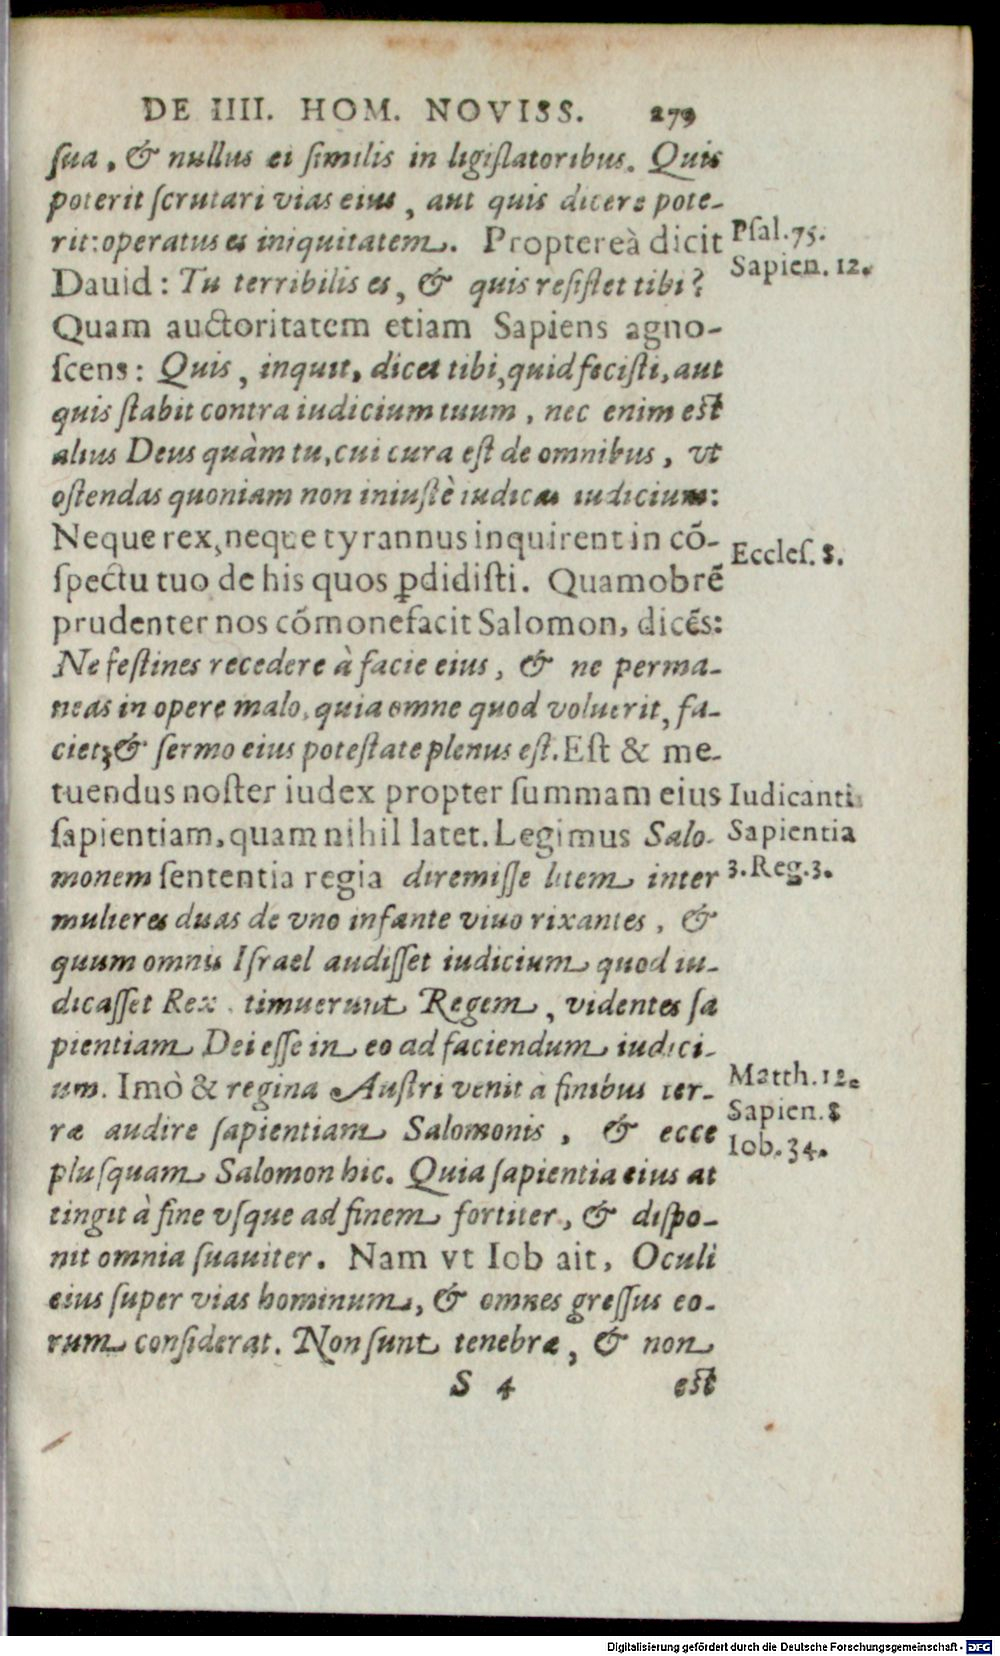 DE IIII. HOM. NOVISS. 279
ſua, & nullus ei ſimilis in ligiſlatoribus. Quis
poterit ſcrutari vias eius, aut quis dicere pote-
rit: operatus es iniquitatem. Propttereà dicit
Dauid: Tu terribilis es, & quis reſiſtet tibi?
Quam auctoritatem etiam Sapiens agno-
ſcens: Quis, inquit, dicet tibi, quid feciſti, aut
quis ſtabit contra iudicium tuum, nec enim eſt
alius Deus quàm tu, cui cura eſt de omnibus, vt
oſtendas quoniam non iniuſtè iudicas iudicium:
Neque rex, neque tyrannus inquirent in cō-
ſpectu tuo de his quos ꝑdidiſti. Quamobrē
prudenter nos cōmonefacit Salomon, dicēs:
Ne feſtines recedere à facie eius, & ne perma-
neas in opere malo, quia omne quod voluerit, fa-
ciet, & ſermo eius poteſtate plenus eſt. Eſt & me-
tuendus noſter iudex propter ſummam eius
ſapientiam, quam nihil latet. Legimus Salo-
monem ſententia regia diremiſſe litem inter
mulieres duas de vno infante viuo rixantes, &
quum omnis Iſrael audiſſet iudicium quod iu-
dicaſſet Rex, timuerunt Regem, videntes ſa
pientiam Dei eſſe in eo ad faciendum iudici-
um. Imò & regina Auſtri venit à finibus ter-
ræ audire ſapientiam Salomonis, & ecce
pluſquam Salomon hic. Quia ſapientia eius at
tingit à fine vſque ad finem fortiter, & diſpo-
nit omnia ſuauiter. Nam vt Iob ait, Oculi
eius ſuper vias hominum, & omnes greſſus eo-
rum conſiderat. Non ſunt tenebræ, & non
S 4 eſt
Pſal. 75.
Sapien. 12.
Eccleſ. 8.
Iudicanti
Sapientia
3. Reg. 3.
Matth. 12.
Sapien. 8
Iob. 34.
Digitalisierung gefördert durch die Deutsche Forschungsgemeinschaft - DFG